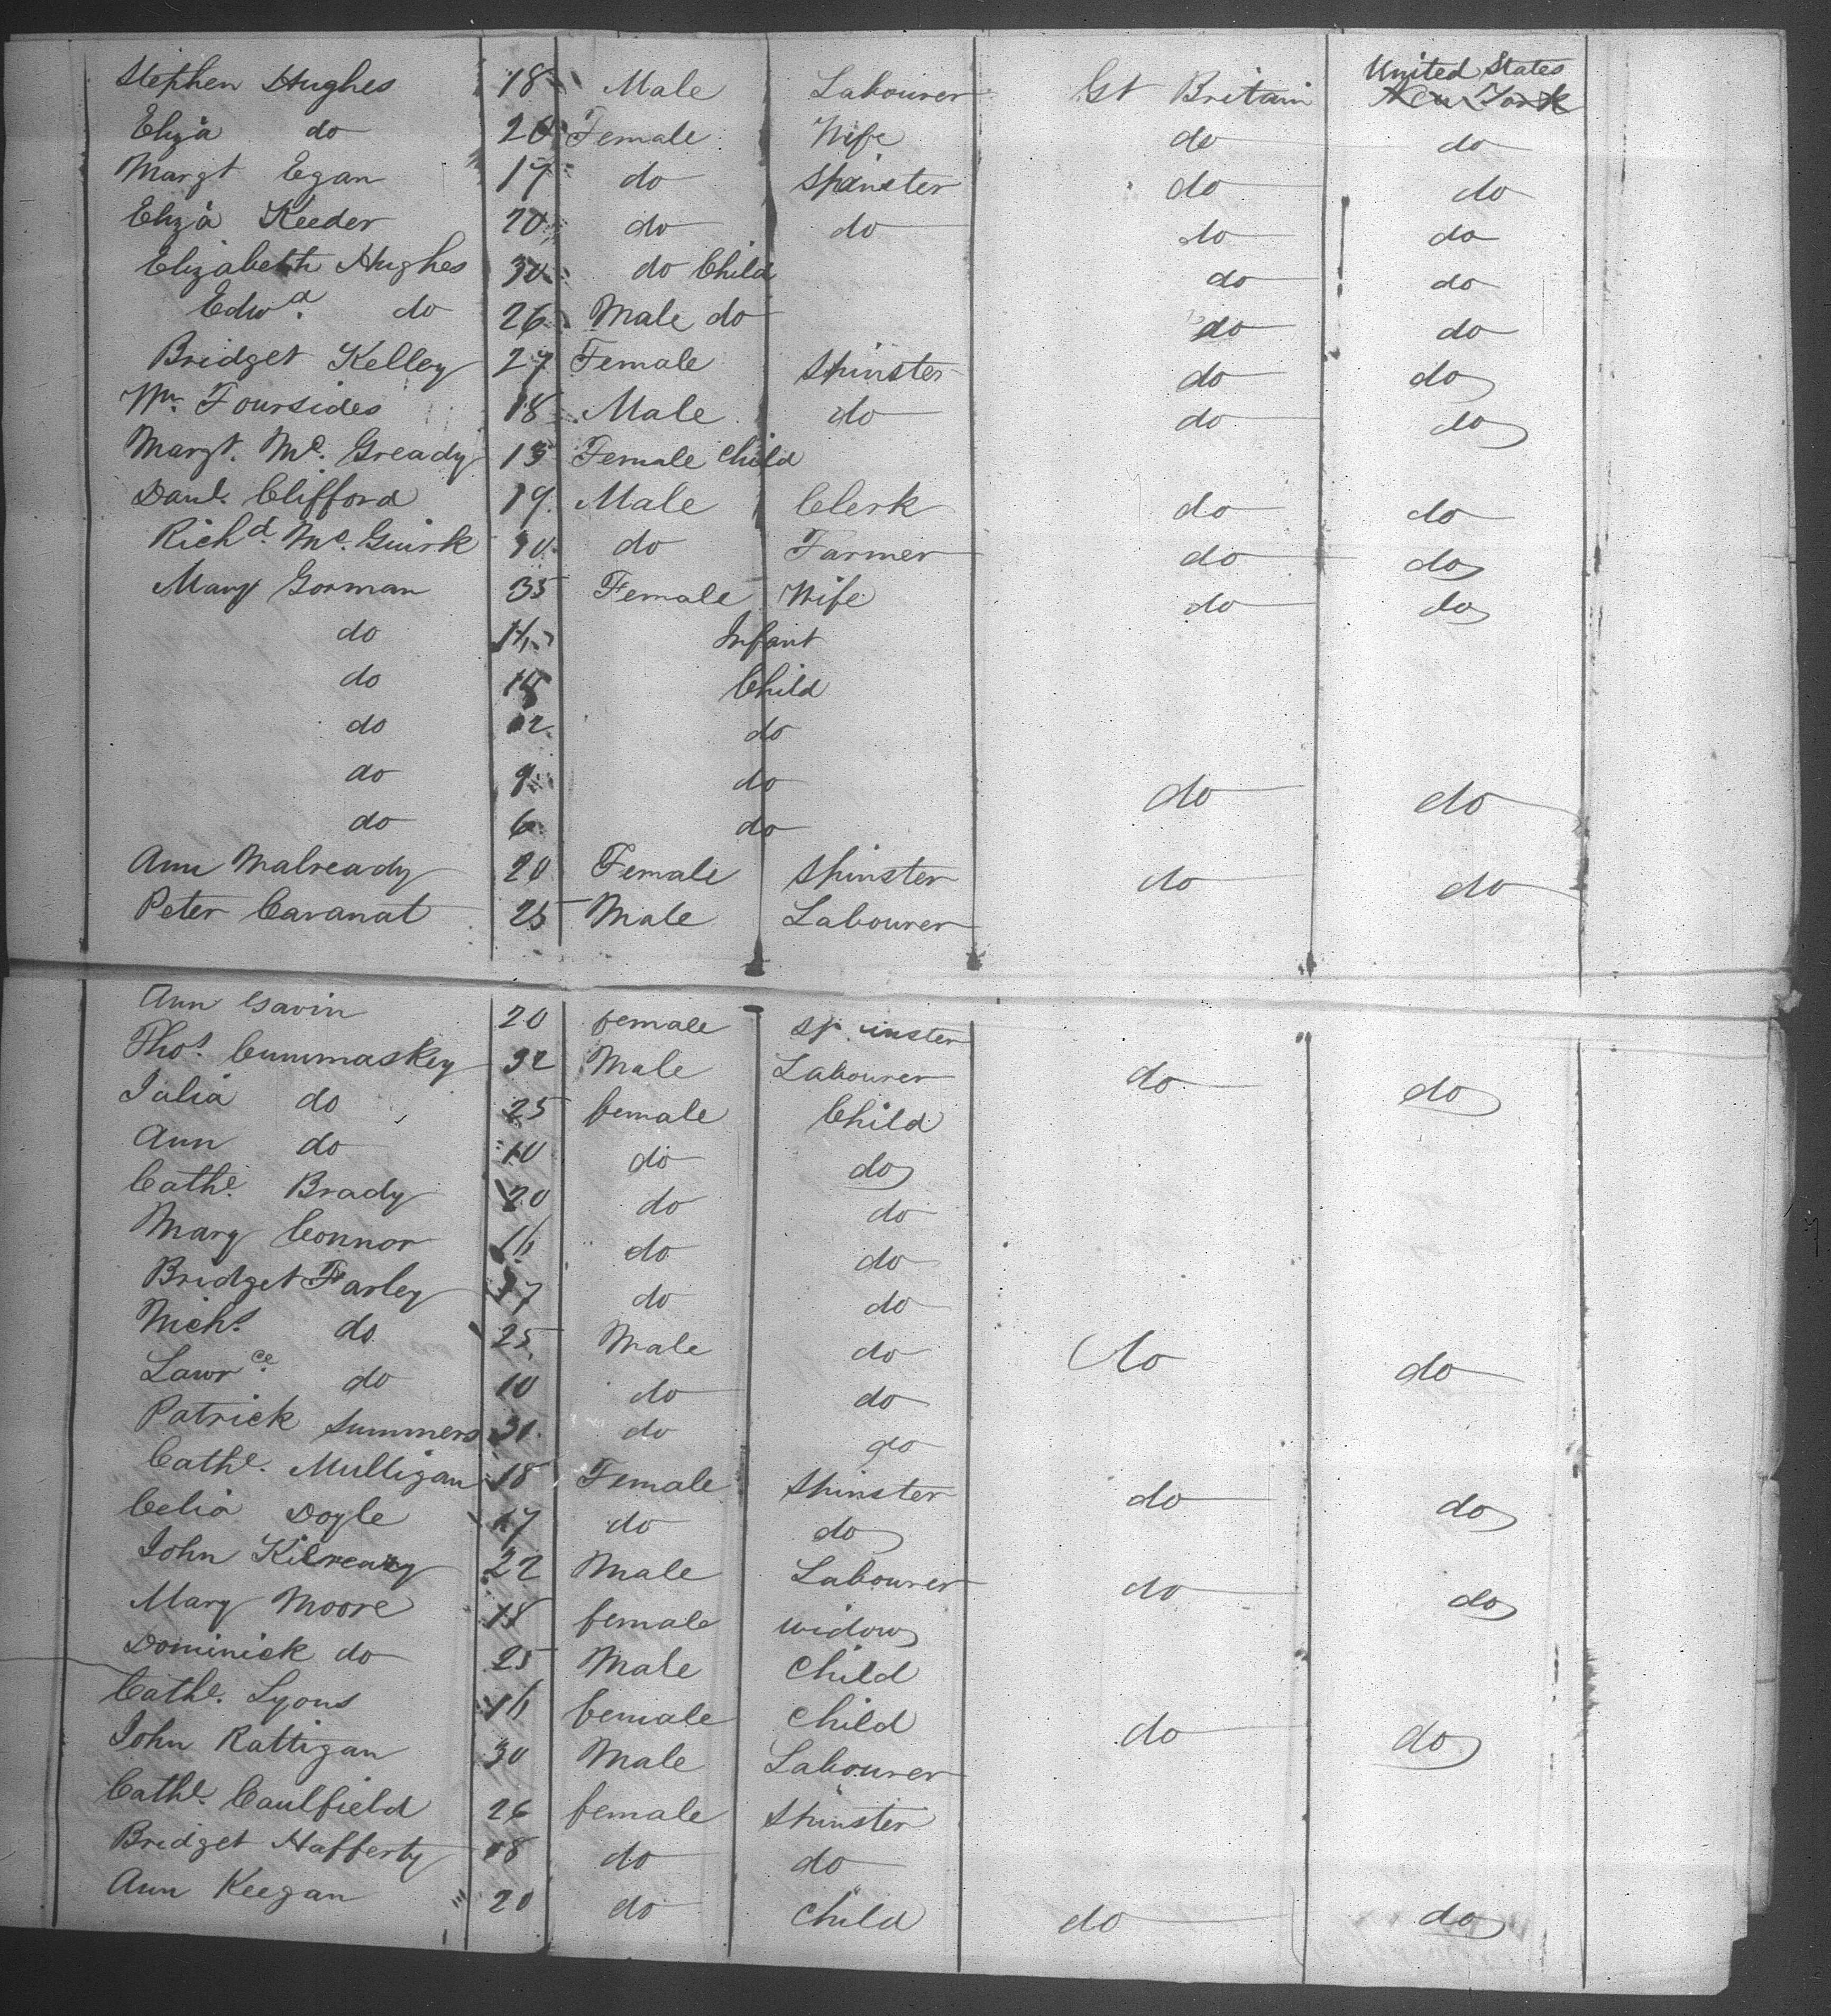 Stephen Hughes 18 Male Labourer Gt Britain United States New York
Eliza do 20 Female Wife do do
Margt Egan 17 do Spinster do do
Eliza Keeder 20 do do do do
Elizabeth Hughes 30 do Child do do
Edwd. do 26 Male do do do
Bridget Kelley 27 Female Spinster do do
Wm. Foursides 18 Male do do do
Margt. Mc. Gready 13 Female Child
Danl. Clifford 19 Male Clerk do do
Richd. Mc. Guirk 30 do Farmer do do
Mary Gorman 35 Female Wife do do
do Infant
do Child
do 12 do
do 9 do do do
do 6 do
Ann Malready 20 Female Spinster do do
Peter Cavanat 25 Male Labourer
Ann Gavin 20 female Spinster
Thos. Cummaskey 32 Male Labourer do do
Julia do 25 female Child
Ann do 10 do do
Cathe. Brady 20 do do
Mary Connor 16 do do
Bridget Farley 17 do do
Michl. do 25 Male do do do
Lawrce. do 10 do do
Patrick Summers 31 do do
Cathe. Mulligan 18 Female Spinster do do
Celia Doyle 17 do do
John 22 Male Labourer do do
Mary Moore 18 female widow
Dominick do 25 Male Child
Cathe. Lyons 16 female Child do do
John Rattigan 30 Male Labourer
Cathe. Caulfield 26 female Spinster
Bridget Hafferty 18 do do
Ann Keegan 20 do Child do do